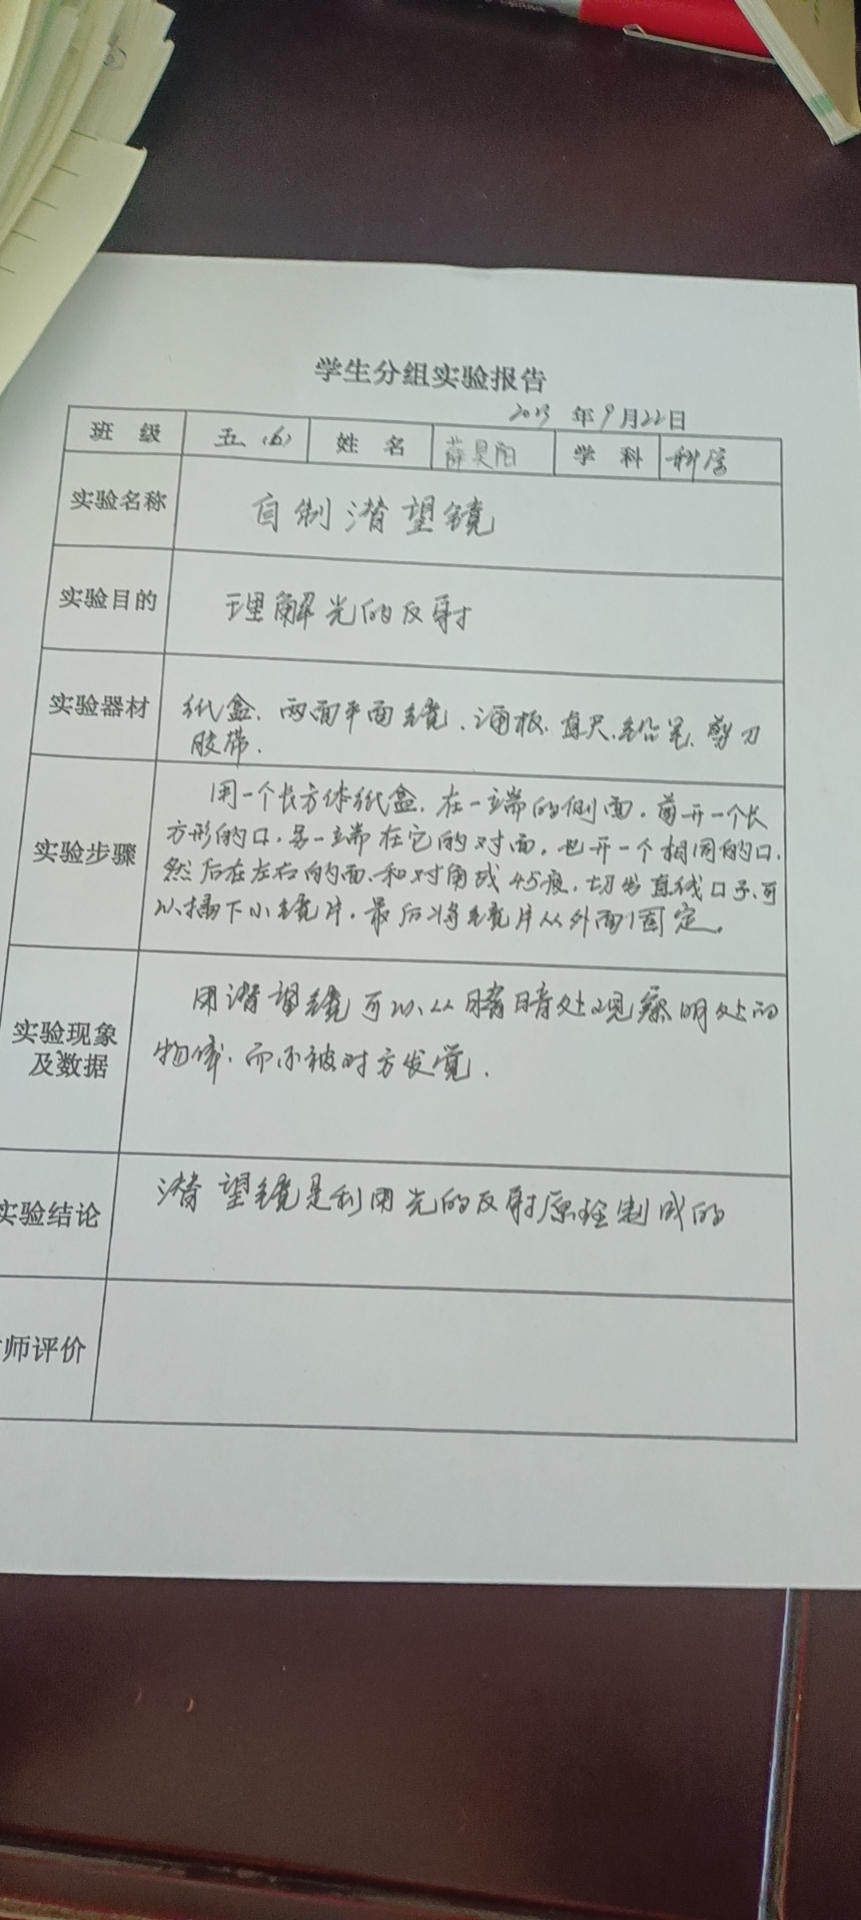 学生分组实验报告
2023 年9月22日
班 级 五(6) 姓 名 薛昊阳 学 科 科学
实验名称 自制潜望镜
实验目的 理解光的反射
实验器材 纸盒、两面平面镜、涌板、直尺、铅笔、剪刀
胶带.
实验步骤 用一个长方体纸盒,在一端的侧面,前开一个长
方形的口,另一端在它的对面,也开一个相同的口,
然后在左右的面、和对角成45痕,切出直线口子、可
以插下小镜片,最后将镜片从外面固定。
实验现象
及数据
用潜望镜可以从暗暗处观察明处的
物体,而不被对方发觉.
实验结论 潜望镜是利用光的反射原理制成的
师评价